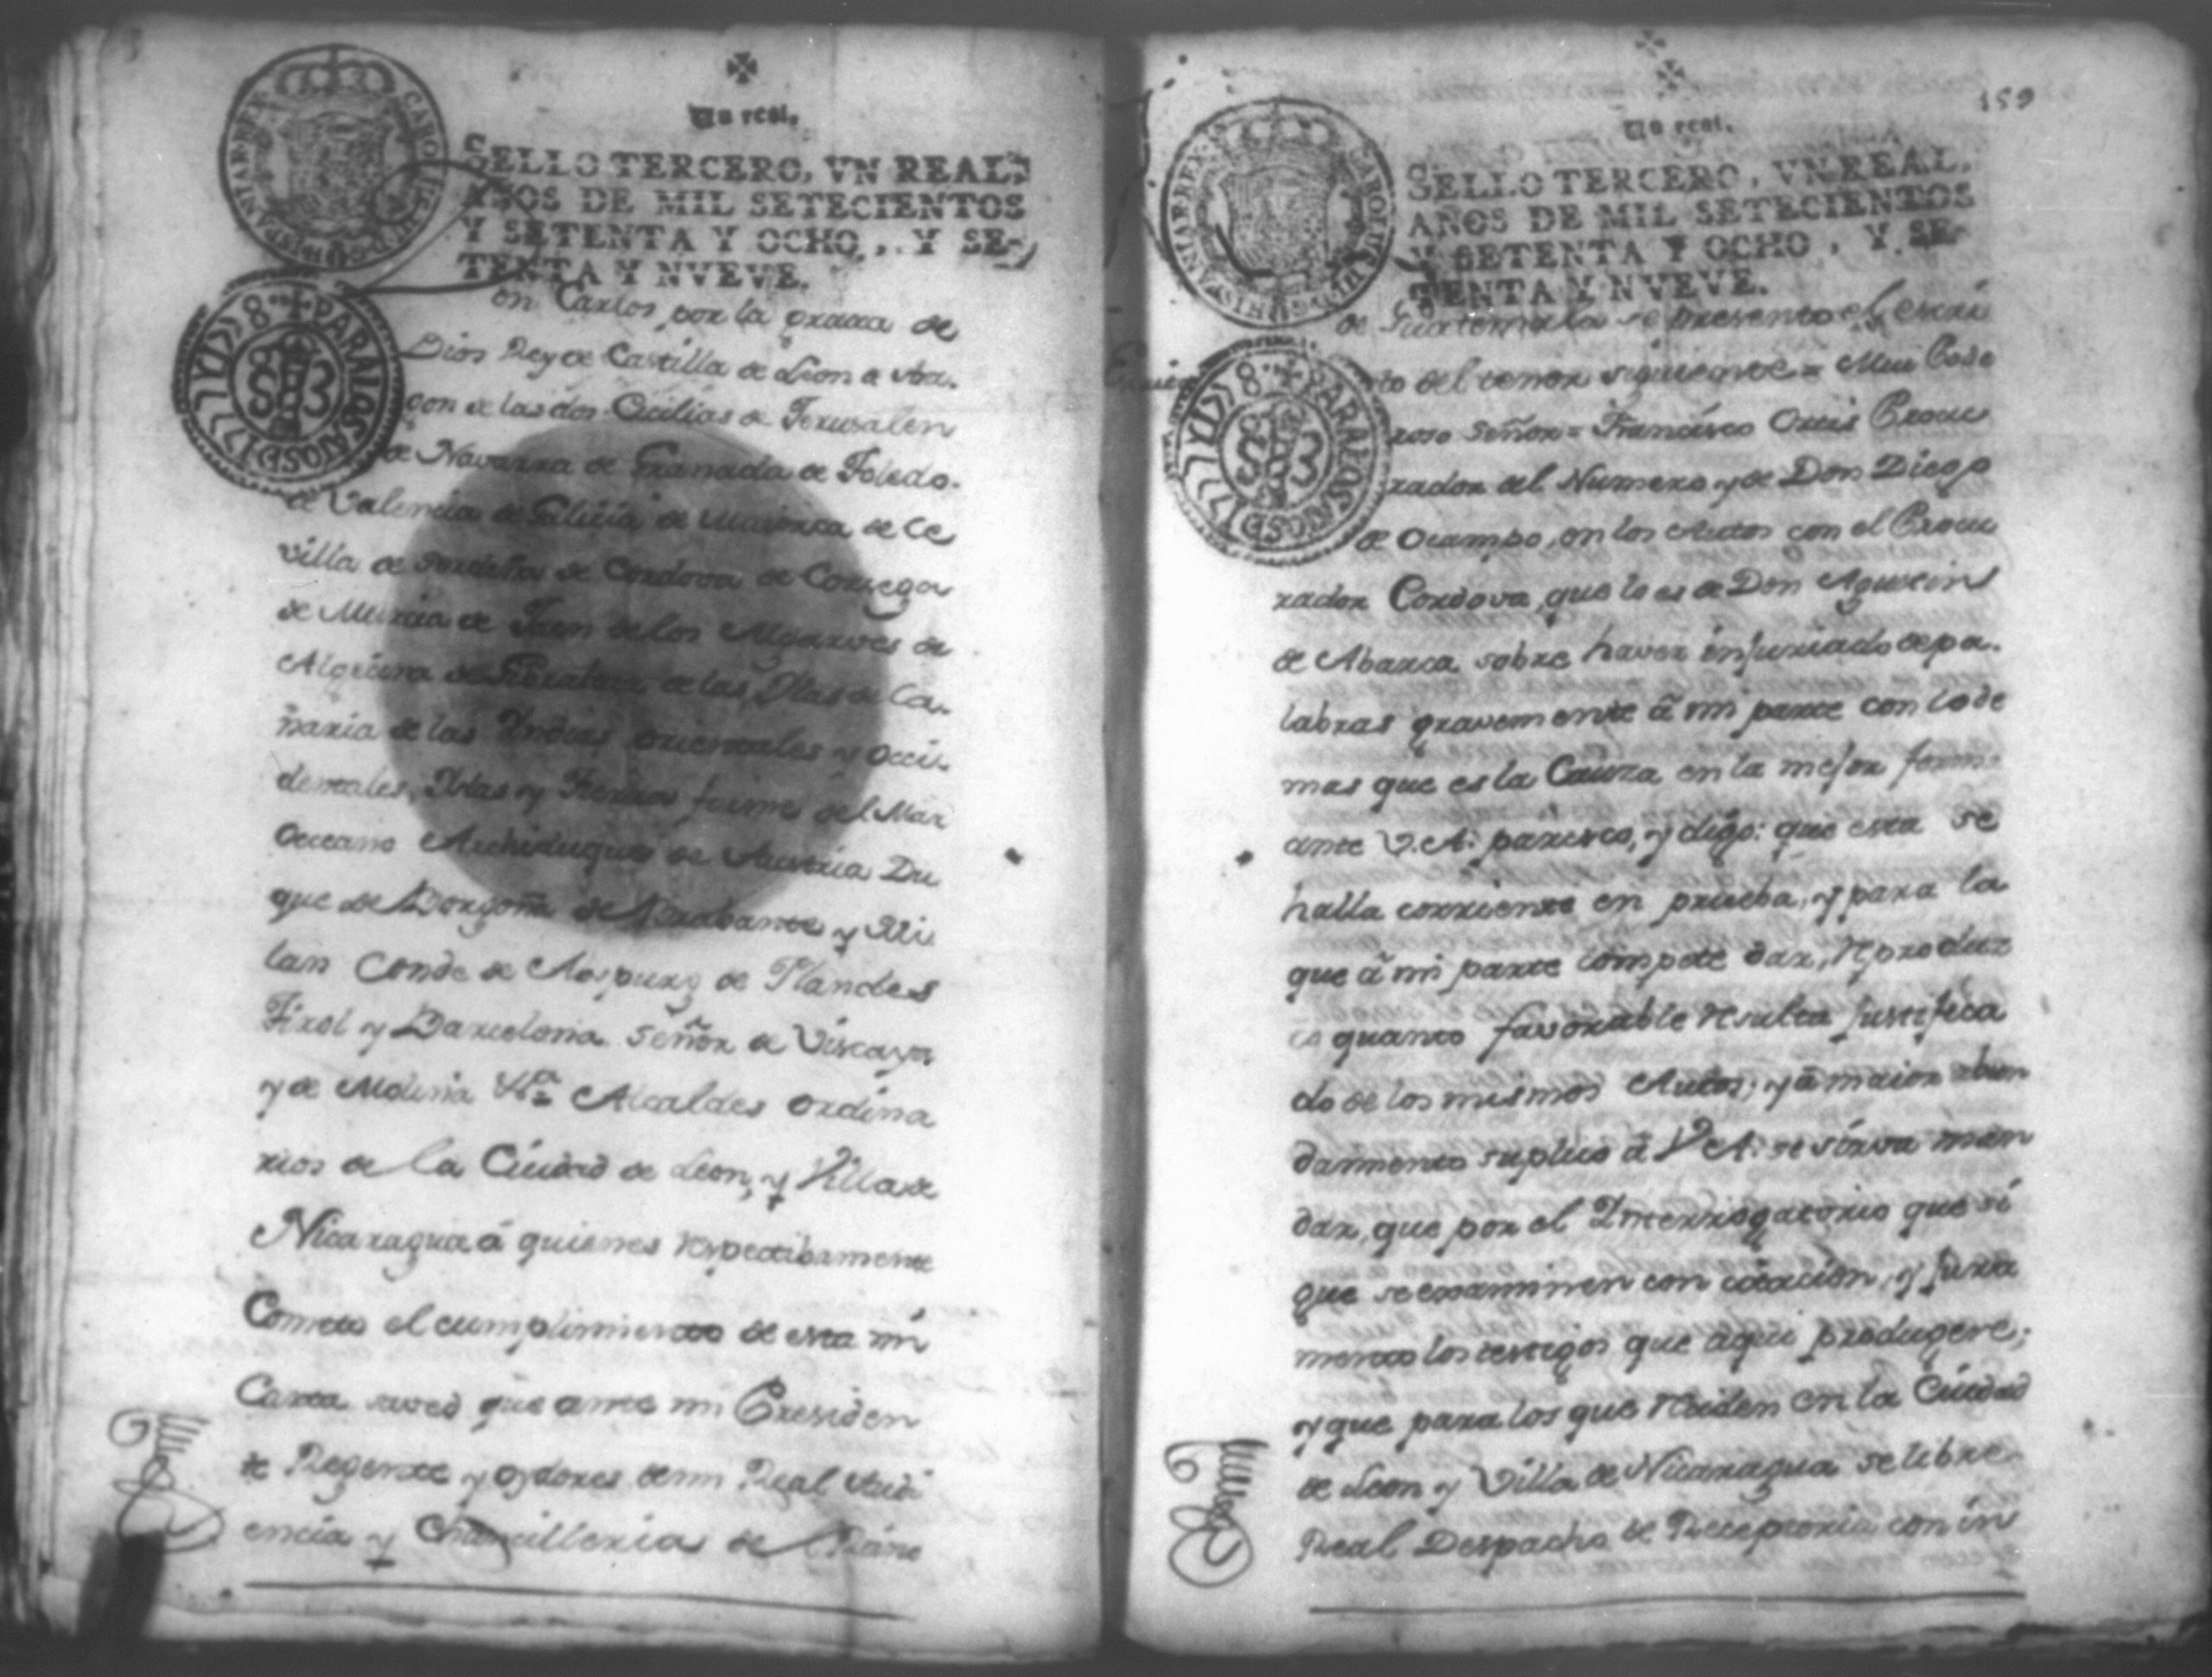 Un real.
SELLO TERCERO, VN REAL,
AÑOS DE MIL SETECIENTOS
Y SETENTA Y OCHO, Y SE-
TENTA Y NVEVE.
on Carlos por la gracia de
Dios Rey de Castilla de Leon de Ara-
gon de las dos Cicilias de Jerusalen
de Navarra de Granada de Toledo.
de Valencia de Galicia de Maiorca de Ce
villa de Serdeña de Cordova de Corcega
de Murcia de Jaen de los Algarves de
Algecira de Gibraltar de las Yslas de Ca-
naria de las Yndias orientales y occi-
dentales, Yslas y Tierra firme del Mar
Occeano Archiduque de Austria Du
que de Borgoña de Brabante y Mi
lan Conde de Aospurg de Flandes
Tirol y Barcelona Señor de Viscaya
y de Molina Alcaldes ordina
rios de la Ciudad de Leon, y Villa de
Nicaragua á quienes respectibamente
Cometo el cumplimiento de esta mi
Carta saved que ante mi Presiden
te Regente y oydores de mi Real Audi
encia y Chancilleria de
159
Un real.
SELLO TERCERO, VN REAL,
AÑOS DE MIL SETECIENTOS
Y SETENTA Y OCHO, Y SE-
TENTA Y NVEVE.
de Guatemala se presento el escri
to del tenor siguiente = Mui Pode
roso Señor = Francisco Ortis Procu
rador del Numero y de Don Diego
de Ocampo, en los Autos con el Procu
rador Cordova que lo es de Don Agustin
de Abarca sobre haver injuriado de pa-
labras gravemente â mi parte con lo de
mas que es la Cauza en la mejor forma
ante V.A. paresco, y digo: que esta se
halla corriente en prueba, y para la
que â mi parte compete dar, reproduz
co quanto favorable resulta justifica
do de los mismos Autos; y â maior abun
damiento suplico â V.A. se sirva man
dar, que por el Interrogatorio que si
gue se examinen con citacion, y jura
mento los testigos que aqui produgere;
y que para los que reciden en la Ciudad
de Leon y Villa de Nicaragua se libre
Real Despacho de Receptoria con in